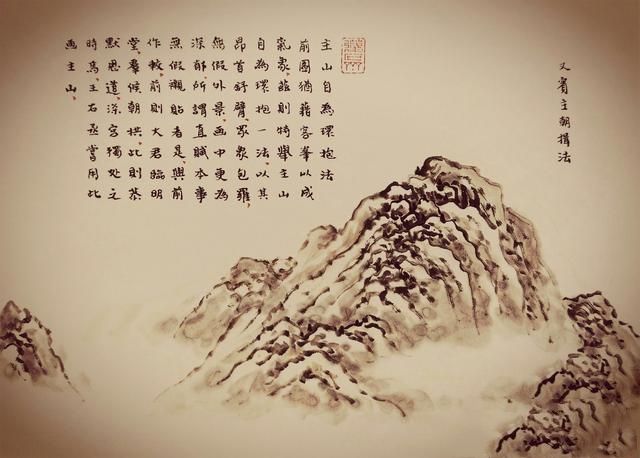 又賓主朝揖法
主山自為環抱法
前圖猶藉客峯以成
氣象，茲則特舉主山
自為環抱一法，以其
昂首舒臂，眾象包羅，
無假外景，畫中更為
深郁，所謂直賊本事
無假襯貼者是，與前
作較，前則大君臨明
堂，羣候朝拱，此則恭
默思道，深宮獨處之
時焉，王右丞嘗用此
画主山